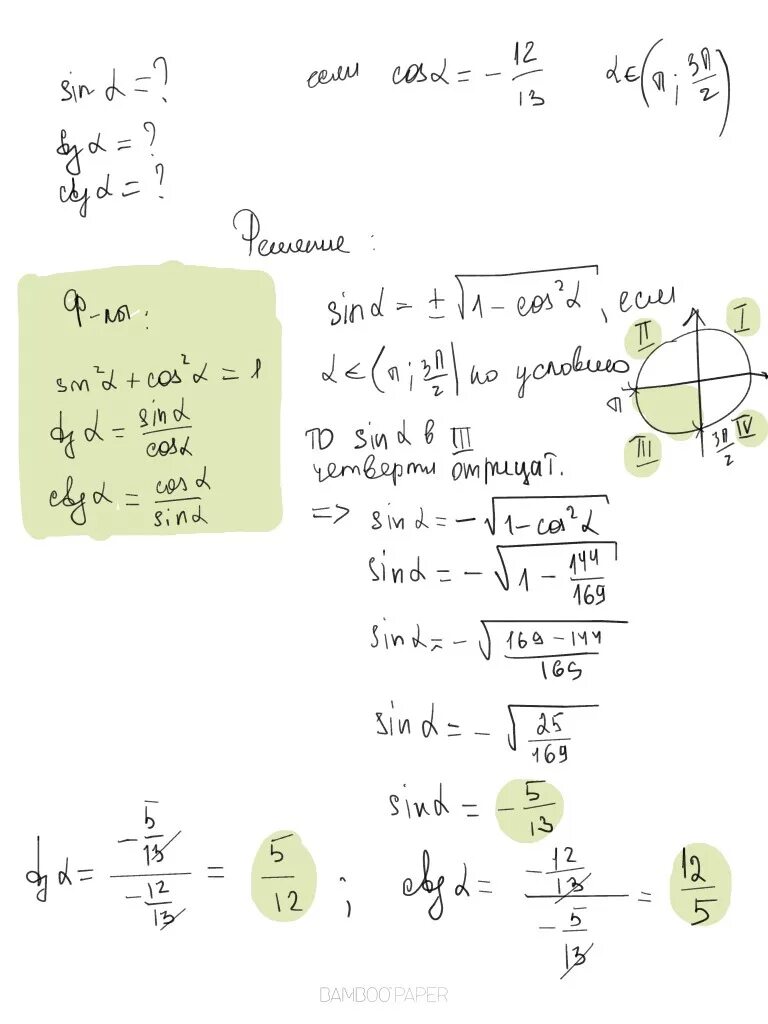 sin α = ? если cos α = - 12/13 α ∈ (π; 3π/2)
tg α = ?
ctg α = ?
Решение:
Ф-лы:
sin²α + cos²α = 1
tg α = sin α / cos α
ctg α = cos α / sin α
sin α = ± √(1 - cos²α), если
α ∈ (π; 3π/2) по условию
то sin α в III
четверти отрицат.
=> sin α = - √(1 - cos²α)
sin α = - √(1 - 144/169)
sin α = - √((169 - 144)/169)
sin α = - √(25/169)
sin α = - 5/13
I
II
III
IV
π
3π/2
tg α = (- 5/13)/(- 12/13) = 5/12 ; ctg α = (- 12/13)/(- 5/13) = 12/5
BAMBOO PAPER